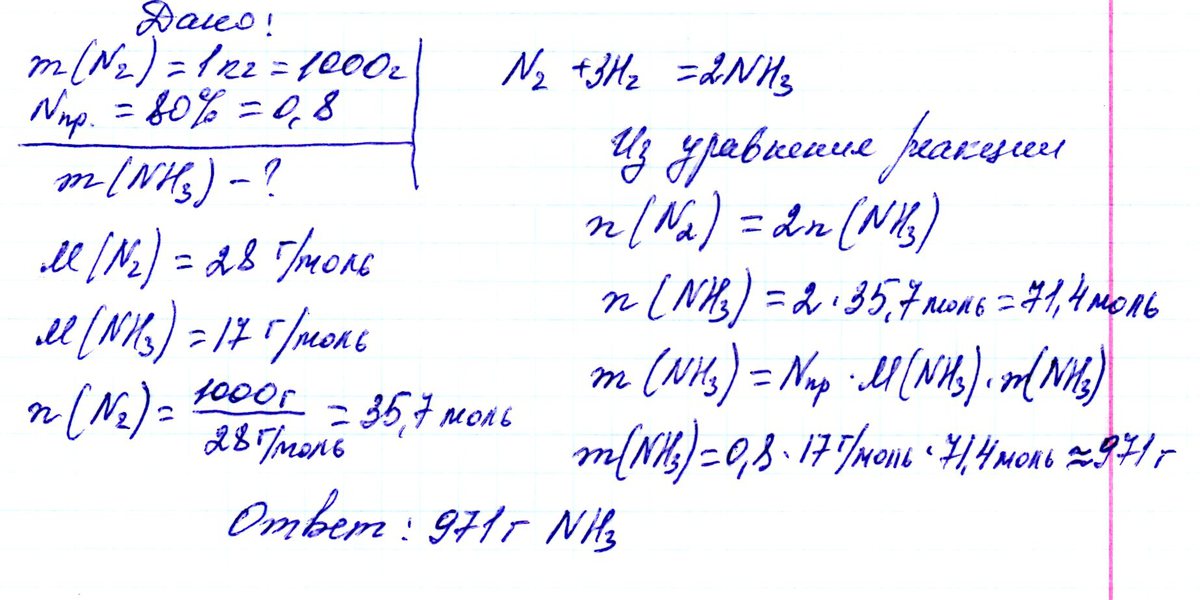 Дано:
m(N₂) = 1кг = 1000г
Nпр. = 80% = 0,8
m(NH₃) - ?
M(N₂) = 28 г/моль
M(NH₃) = 17 г/моль
n(N₂) = 1000г / 28г/моль = 35,7 моль
N₂ + 3H₂ = 2NH₃
Из уравнения реакции
n(N₂) = 2n(NH₃)
n(NH₃) = 2 · 35,7 моль = 71,4 моль
m(NH₃) = Nпр · M(NH₃) · n(NH₃)
m(NH₃) = 0,8 · 17 г/моль · 71,4 моль ≈ 971 г
Ответ: 971 г NH₃